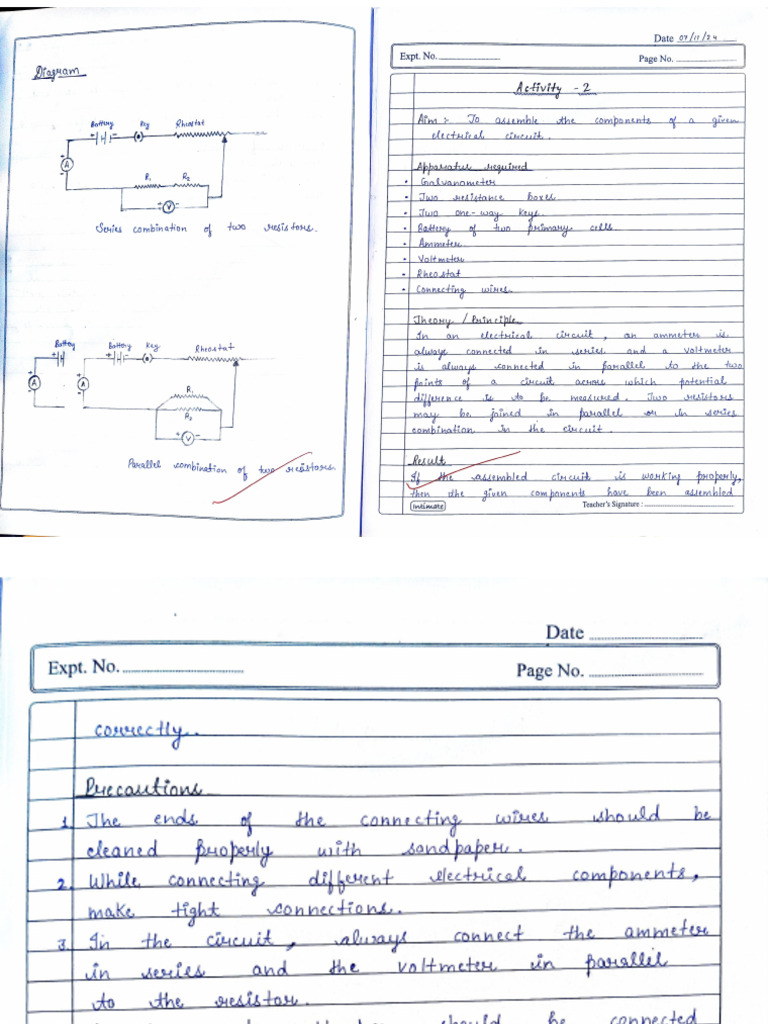 Diagram
Battery Key Rheostat
+ -
+
A
-
R₁ R₂
V
Series combination of two resistors.
Battery Battery Key Rheostat
+
A
A
R₁
R₂
V
Parallel combination of two resistors.
Date 07/11/24
Expt. No. Page No.
Activity - 2
Aim :- To assemble the components of a given
electrical circuit.
Apparatus required
• Galvanometer
• Two resistance boxes
• Two one-way keys
• Battery of two primary cells
• Ammeter
• Voltmeter
• Rheostat
• Connecting wires.
Theory / Principle
In an electrical circuit, an ammeter is
always connected in series and a voltmeter
is always connected in parallel to the two
points of a circuit across which potential
difference is to be measured. Two resistors
may be joined in parallel or in series
combination in the circuit.
Result
If the assembled circuit is working properly,
then the given components have been assembled
intimate Teacher's Signature :
Date
Expt. No. Page No.
correctly.
Precautions
1. The ends of the connecting wires should be
cleaned properly with sandpaper.
2. While connecting different electrical components,
make tight connections.
3. In the circuit, always connect the ammeter
in series and the voltmeter in parallel
to the resistor.
should be connected